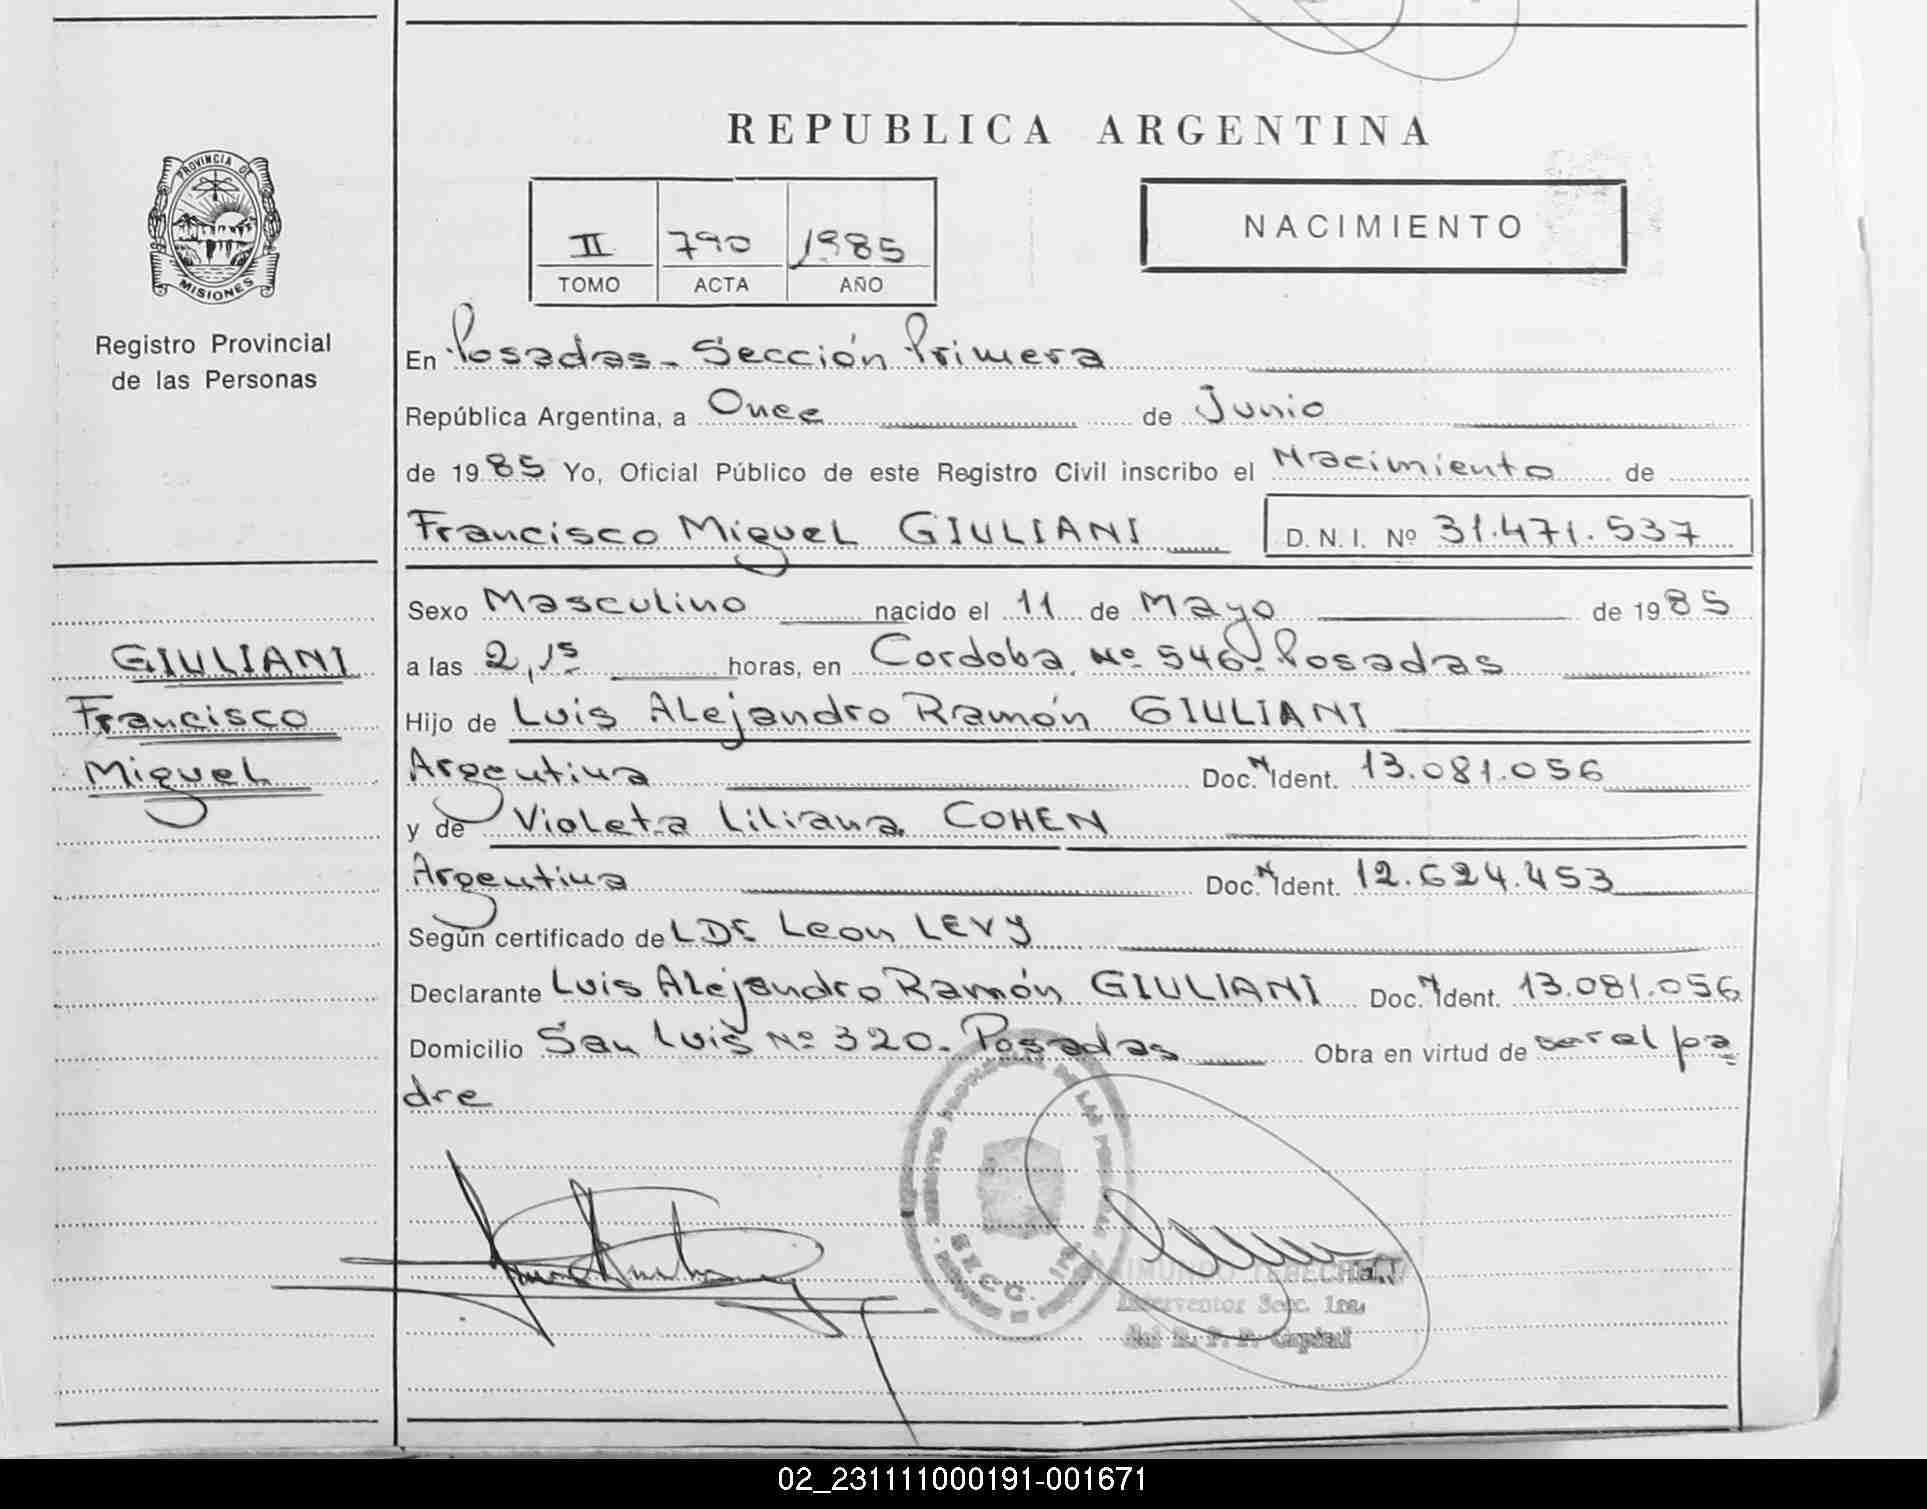 REPUBLICA ARGENTINA
PROVINCIA DE
MISIONES
Registro Provincial
de las Personas
II 790 1985
TOMO ACTA AÑO
NACIMIENTO
En Posadas - Sección Primera
República Argentina, a Once de Junio
de 1985 Yo, Oficial Público de este Registro Civil inscribo el Nacimiento de
Francisco Miguel GIULIANI D. N. I. Nº 31.471.537
GIULIANI
Francisco
Miguel
Sexo Masculino nacido el 11 de Mayo de 1985
a las 2,15 horas, en Cordoba Nº 546. Posadas
Hijo de Luis Alejandro Ramón GIULIANI
Argentina Doc. N Ident. 13.081.056
y de Violeta Liliana COHEN
Argentina Doc. N Ident. 12.624.453
Según certificado de Leon LEVY
Declarante Luis Alejandro Ramón GIULIANI Doc. N Ident. 13.081.056
Domicilio San Luis Nº 320. Posadas Obra en virtud de ser el pa
dre
SECC. 1ra
Interventor Secc. 1ra.
del R. P. P. Capital
02_231111000191-001671